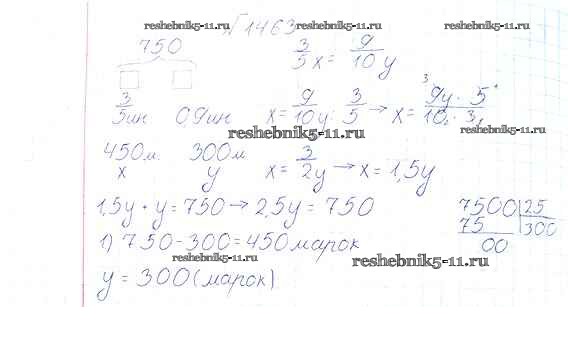 reshebnik5-11.ru reshebnik5-11.ru
№1463
750
3/5 x = 9/10 y
3/5 ин 0,9 ин x = 9/10 y : 3/5 → x = 9y · 5 / 10 · 3
reshebnik5-11.ru reshebnik5-11.ru
450 м. 300 м x = 3/2y → x = 1,5y
x y
1,5y + y = 750 → 2,5y = 750 7500 | 25
75 300
1) 750 - 300 = 450 марок 00
reshebnik5-11.ru reshebnik5-11.ru
y = 300 (марок)